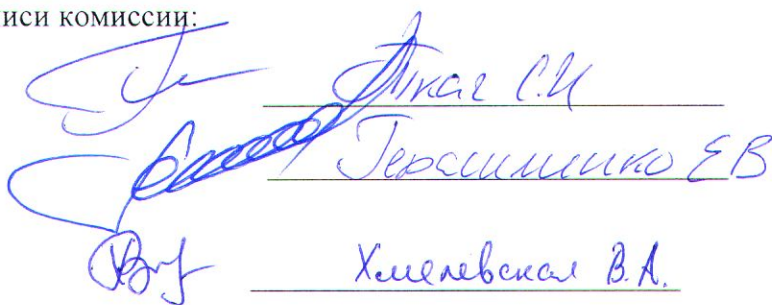 иси комиссии:
Ткач С.И
Герасименко Е В
Хмелевская В.А.